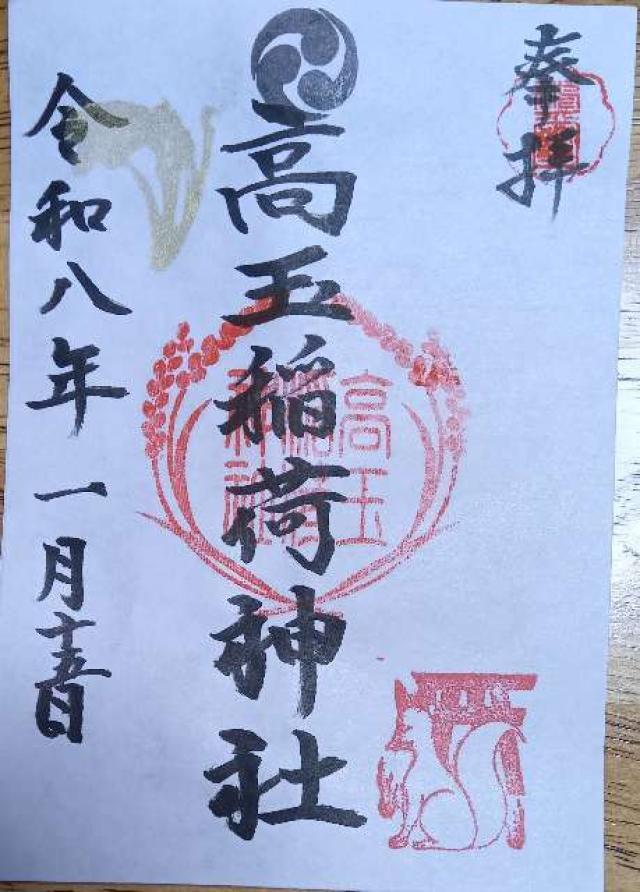 奉拝
高玉稲荷神社
高玉稲荷神社
令和八年一月十五日